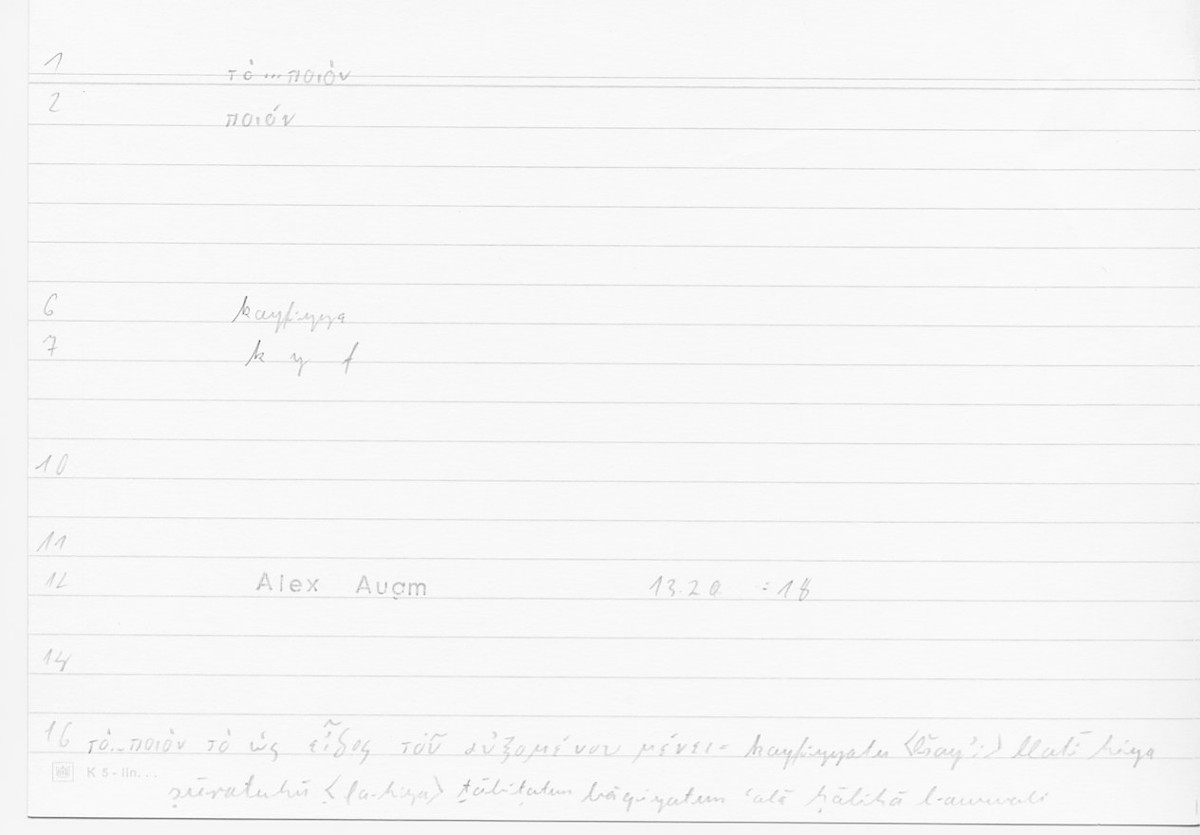 1 τὸ...ποιὸν
2 ποιόν
6 kayfiyya
7 k y f
10
11
12 Alex Auǧm 13.20 :18
14
16 τὸ...ποιὸν τὸ ὡς εἶδος τοῦ αὐξομένου μένει = kayfiyyatu ⟨š-šayʾi⟩ llatī hiya
K 5 - lin...
ṣūratuhū ⟨fa-hiya⟩ ṯābitatun bāqiyatun ʿalā ḥālihā l-awwali